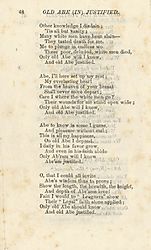 48 OLD ABE (IN) JUSTIFIED.
Other knowledge I disdain;
'Tis all but vanity:
Many white men have been slain—
They tasted death for me.
Me to plunge in endless wo
These poor, deluded, white men died,
Only old Abe will I know,
And old Abe justified.
Abe, I'll here set up my rest;
My everlasting heart
From the heaven of your breast
Shall never more depart.
Care I where the white men go?
Their wounds for me stand open wide;
Only old Abe will I know,
And old Abe justified.
Abe to know is some I guess,
And pleasure without end;
This is all my happiness,
On old Abe I depend.
I daily in his favor grow,
And ever in his faith abide
Only Ab'ram will I know,
Abe'am justified.
O, that I could all invite
Abe's wisdom thus to prove;
Show the length, the breadth, the height,
And depth of Abe's love!
Fain I would to "Leaguers" show
Their "Loyal" balls alone applied;
Only old Abe should know,
And old Abe justified.